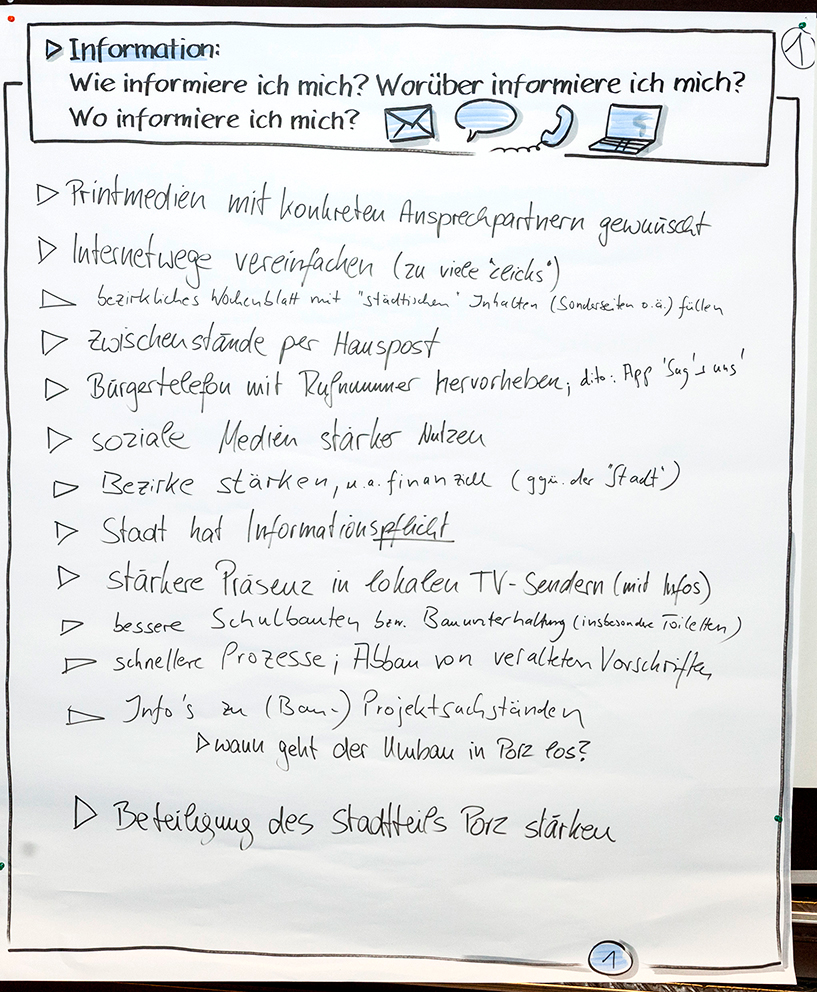 Information:
Wie informiere ich mich? Worüber informiere ich mich?
Wo informiere ich mich?
1
Printmedien mit konkreten Ansprechpartnern gewünscht
Internetwege vereinfachen (zu viele "clicks")
bezirkliches Wochenblatt mit "städtischen" Inhalten (Sonderseiten o.ä.) füllen
Zwischenstände per Hauspost
Bürgertelefon mit Rufnummer hervorheben; dito: App 'Sag's uns'
soziale Medien stärker Nutzen
Bezirke stärken, u.a. finanziell (ggü. der "Stadt")
Stadt hat Informationspflicht
stärkere Präsenz in lokalen TV-Sendern (mit Infos)
bessere Schulbauten bzw. Bauunterhaltung (insbesondere Toiletten)
schnellere Prozesse; Abbau von veralteten Vorschriften
Info's zu (Bau-) Projektsachständen
wann geht der Umbau in Porz los?
Beteiligung des Stadtteils Porz stärken
1